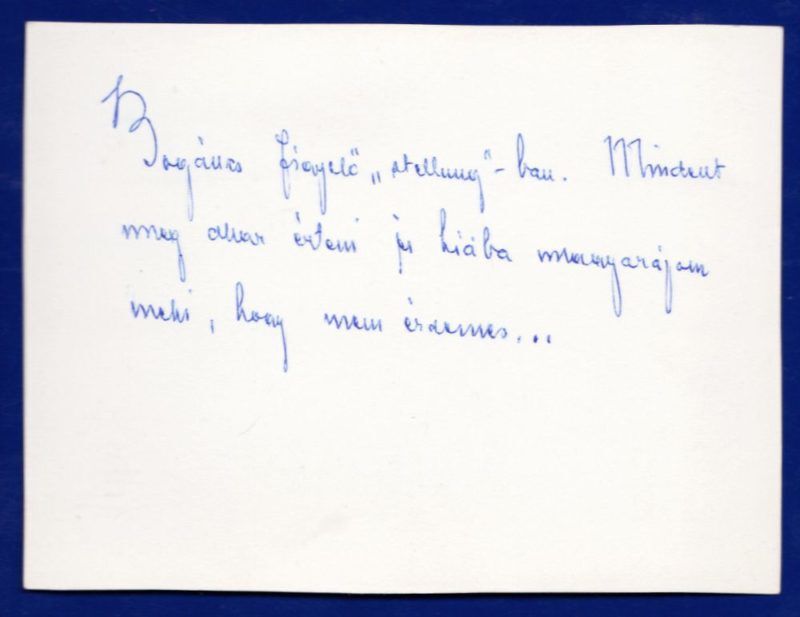 Bogáncs figyelő „stellung"-ban. Mindent
meg akar érteni és hiába magyarázom
neki, hogy nem érdemes...